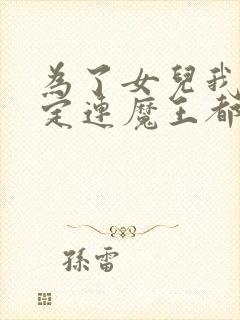 為了女兒我
定連魔王都
孫雷